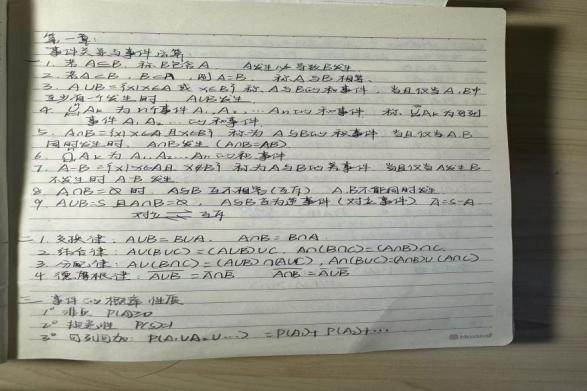 第一章:
事件关系与事件运算
一 1. 若A⊂B, 称B包含A A发生必导致B发生
2. 若A⊂B, B⊂A, 则A=B. 称A与B相等.
3. A∪B={x|x∈A或x∈B} 称A与B的和事件, 当且仅当A,B中
至少有一个发生时 A∪B发生
4. ∪Ak为n个事件A1,A2,…An的和事件 称∪Ak为可列
事件A1,A2,… 的和事件.
5. A∩B={x|x∈A且x∈B} 称为A与B的积事件 当且仅当A,B
同时发生时, A∩B发生 (A∩B=AB)
6. ∩Ak为A1,A2,…An的积事件
7. A-B={x|x∈A且x∉B} 称为A与B的差事件 当且仅当A发生B
不发生时A-B发生
8. A∩B=∅时, A与B互不相容(互斥) A,B不能同时发生
9. A∪B=S且A∩B=∅, A与B互为逆事件(对立事件) Ā=S-A
对立 互斥
二 1. 交换律: A∪B=B∪A. A∩B=B∩A.
2. 结合律: A∪(B∪C)=(A∪B)∪C. A∩(B∩C)=(A∩B)∩C.
3. 分配律: A∪(B∩C)=(A∪B)∩(A∪C), A∩(B∪C)=(A∩B)∪(A∩C)
4. 德摩根律: A∪B=A∩B A∩B=A∪B
三 事件的概率性质
1° 非负 P(A)≥0
2° 规范性 P(S)=1
3° 可列可加: P(A1∪A2∪…)=P(A1)+P(A2)+…